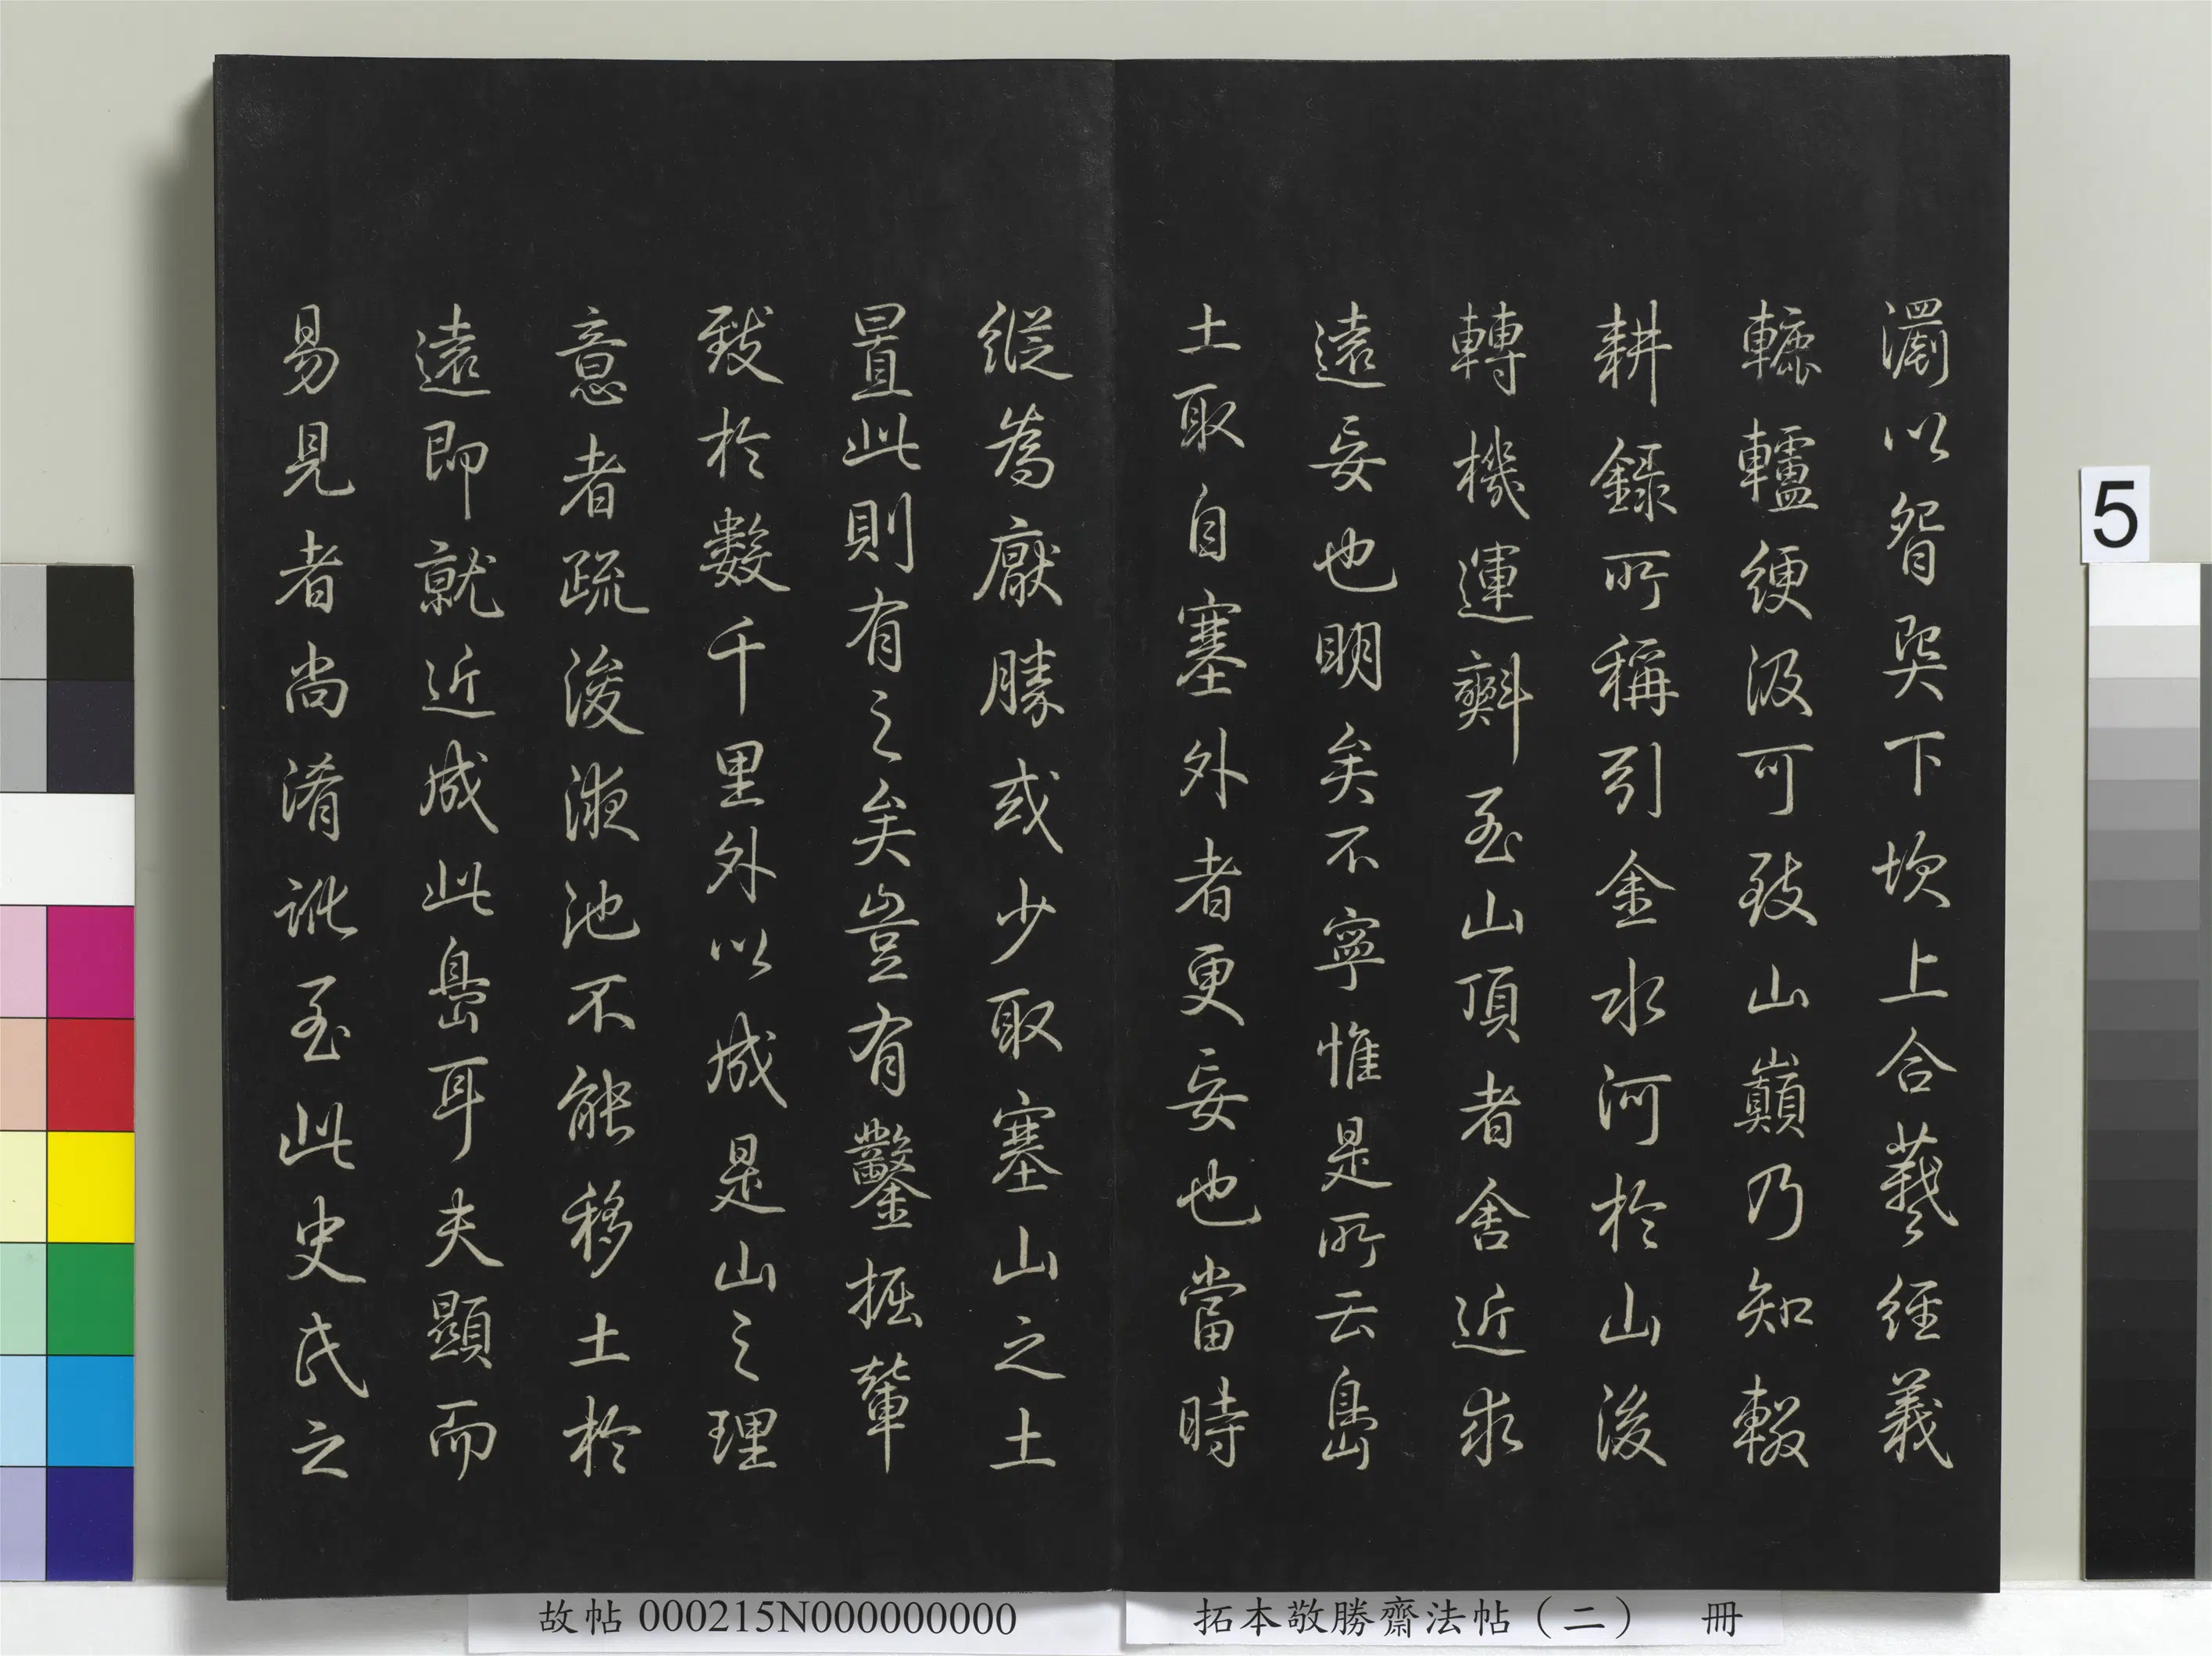 瀱以眢巽下坎上合羲經義
轆轤綆汲可致山巔乃知輟
耕錄所稱引金水河於山後
轉機運㪺至山頂者舍近求
遠妄也明矣不寧惟是所云島
土取自塞外者更妄也當時
縱為厭勝或少取塞山之土
置此則有之矣豈有鑿掘輦
致於數千里外以成是山之理
意者疏浚液池不能移土於
遠即就近成此島耳夫顯而
易見者尚淆訛至此史氏之
5
故帖 000215N000000000
拓本敬勝齋法帖（二） 冊